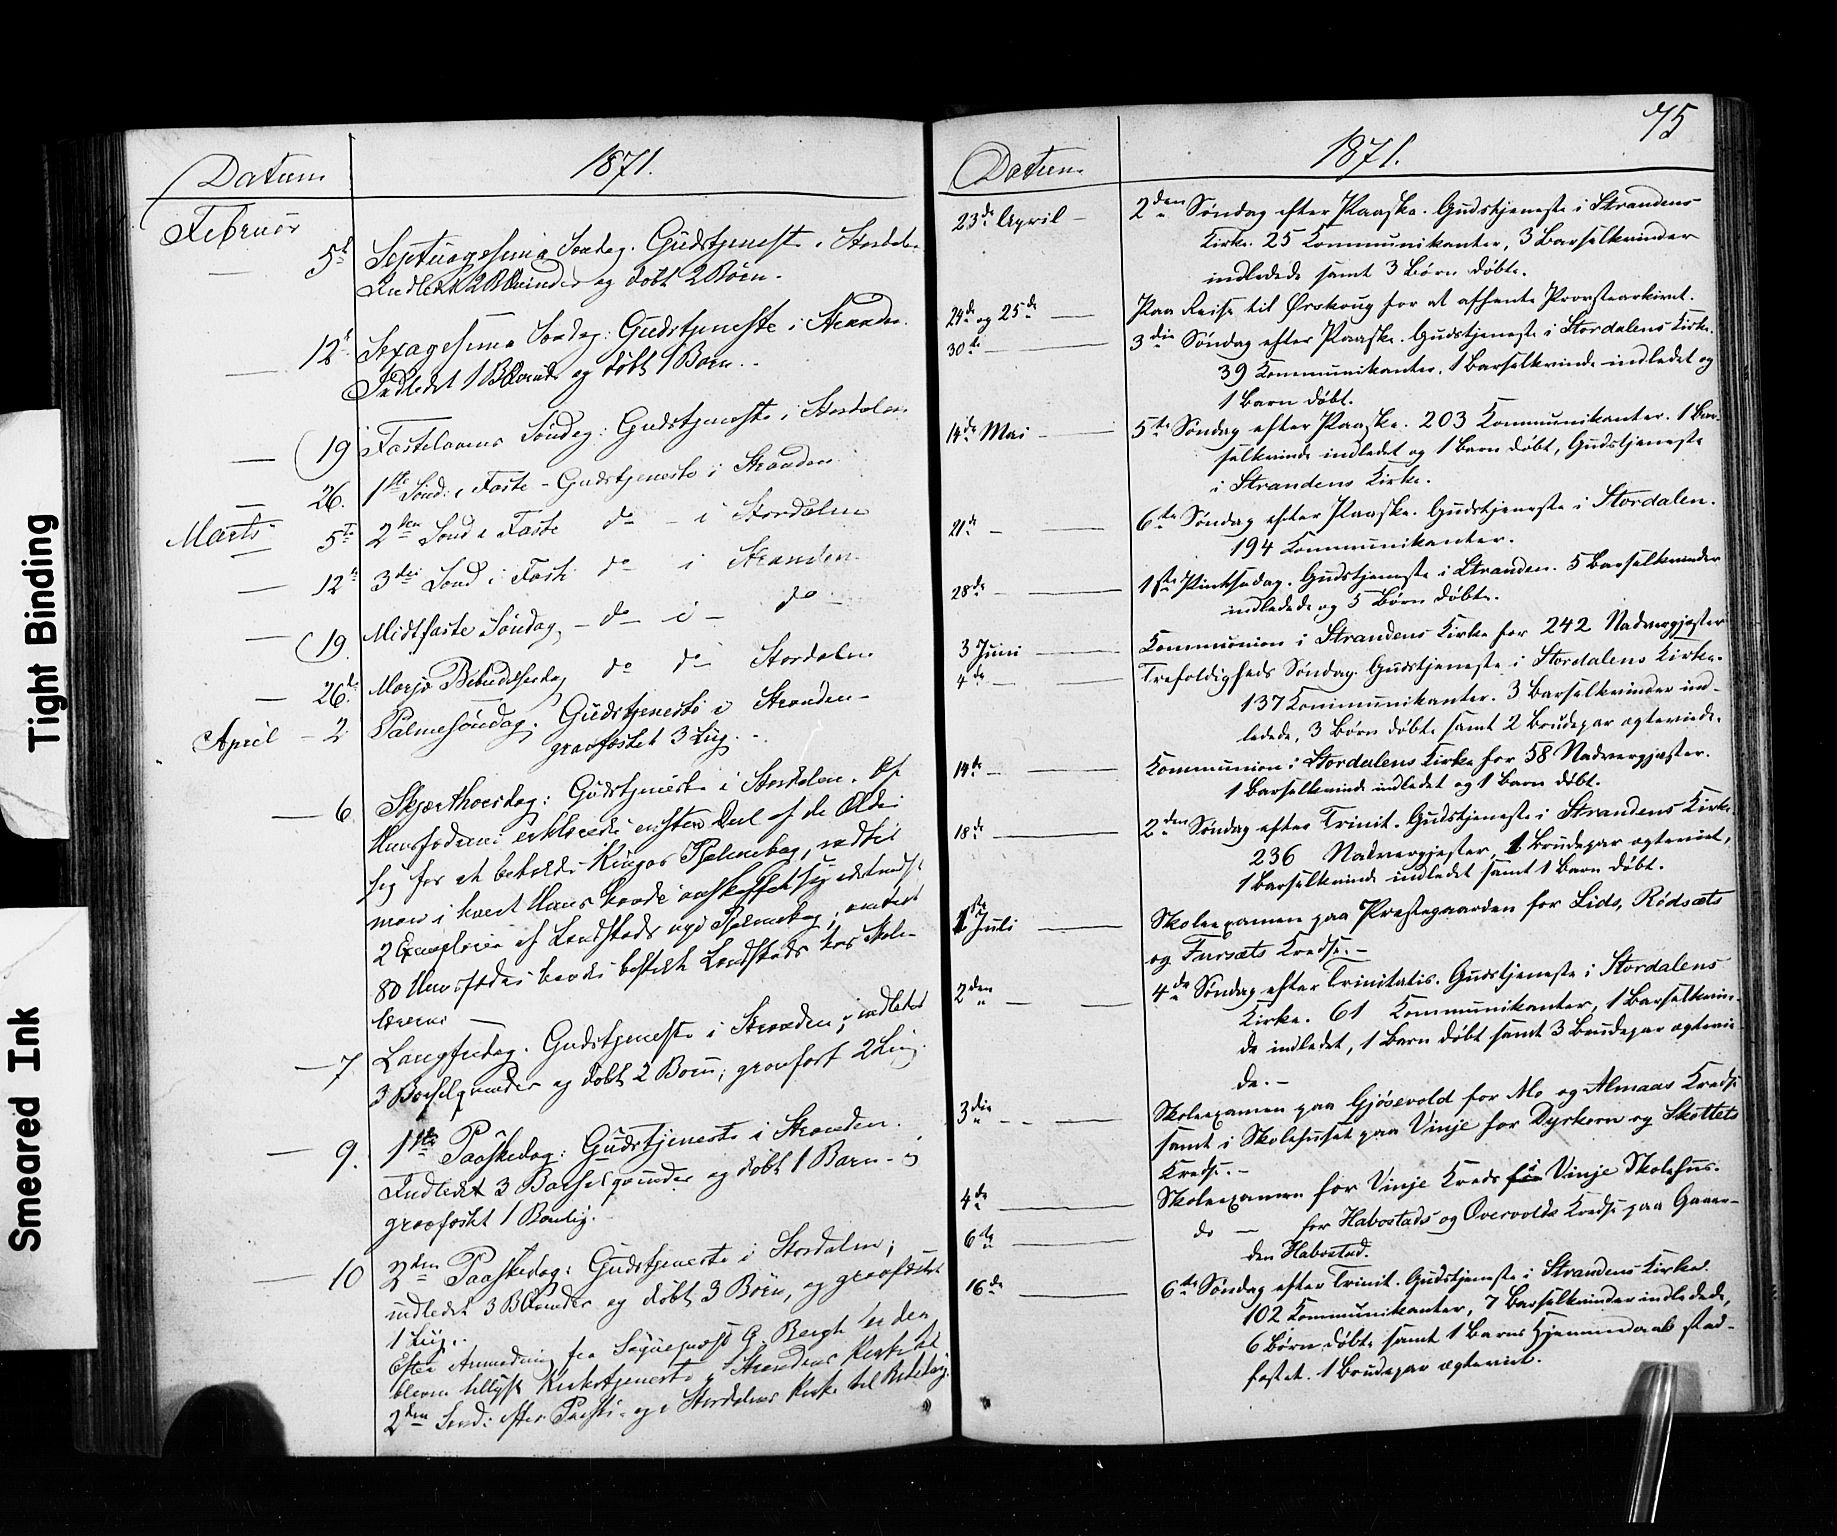 Tight Binding
Smeared Ink
Datum
1871.
Februar
5t Septuagesima Søndag. Gudstjeneste i Stordalen
Indledt 2 BKvinder og døbt 2 Børn.
— 12t Sexagesima Søndag: Gudstjeneste i Stranden.
Indledet 1 BKvinde og døbt 1 Barn.
— 19 Fastelavns Søndag: Gudstjeneste i Stordalen
— 26. 1ste Sønd: i Faste – Gudstjeneste i Stranden
Marts 5te 2den Sønd i Faste do – i Stordalen
— 12te 3die Sønd i Faste do i Stranden
— 19. Midtfaste Søndag, – do – i – do
— 26de Mariæ Bebudelsesdag do do Stordalen
April – 2 Palmesøndag. Gudstjeneste i Stranden –
gravfæstet 3 Lig.
— 6. Skjærthorsdag: Gudstjeneste i Stordalen. Af
Huusfædrene erklærede en stor Deel af de Ældre
sig for at beholde Kingos Psalmebog,
man i hvert Huus havde anskaffet sig
2 Exemplarer af Landstads nye Psalmebog;
80 Huusfædre havde bestilt Landstads hos Skole-
lærerne —
— 7 Langfredag. Gudstjeneste i Stranden; indledet
3 Barselqvinder og døbt 2 Børn; gravfæst 2 Lig.
— 9. 1ste Paaskedag: Gudstjeneste i Stranden.
Indledt 3 Barselqvinder og døbt 1 Barn –
gravfæstet 1 Barnlig.
— 10 2den Paaskedag: Gudstjeneste i Stordalen;
indledt 3 BKvinder og døbt 3 Børn, og gravfæstet
1 Lig.
Efter Anmodning fra Sogneprest G. Bergh er der
bleven tillyst Kirketjeneste i Strandens Kirke til
2den Sønd: efter Paaske og i Stordalens Kirke til Bededag.
75
Datum
1871.
23de April – 2den Søndag efter Paaske. Gudstjeneste i Strandens
Kirke. 25 Kommunikanter, 3 Barselkvinder
indledede samt 3 Børn døbte.
24de og 25de — Paa Reise til Ørskoug for at afhente Provstearkivet.
30te — 3die Søndag efter Paaske. Gudstjeneste i Stordalens Kirke.
39 Kommunikanter. 1 Barselkvinde indledet og
1 Barn døbt.
14de Mai — 5te Søndag efter Paaske. 203 Kommunikanter. 1 Bar-
selkvinde indledet og 1 Barn døbt, Gudstjeneste
i Strandens Kirke.
21de — 6te Søndag efter Paaske. Gudstjeneste i Stordalen.
194 Kommunikanter.
28de — 1ste Pintsedag. Gudstjeneste i Stranden. 5 Barselkvinder
indledede og 5 Børn døbte.
3 Juni — Kommunion i Strandens Kirke for 242 Nadvergjæster
4de — Trefoldigheds Søndag. Gudstjeneste i Stordalens Kirke.
137 Kommunikanter. 3 Barselkvinder ind-
ledede, 3 Børn døbte samt 2 Brudepar ægteviede.
14de — Kommunion i Stordalens Kirke for 58 Nadvergjæster.
1 Barselkvinde indledet og 1 Barn døbt.
18de — 2den Søndag efter Trinit. Gudstjeneste i Strandens Kirke
236 Nadvergjester, 1 Brudepar ægteviet,
1 Barselkvinde indledet samt 1 Barn døbt.
1ste Juli — Skoleexamen paa Prestegaarden for Lids, Rødsæts
og Fursæts Kredse. –
2den — 4de Søndag efter Trinitatis. Gudstjeneste i Stordalens
Kirke. 61 Kommunikanter, 1 Barselkvin-
de indledet, 1 Barn døbt samt 3 Brudepar ægtevie-
de. –
3die — Skoleexamen paa Gjøsevold for Mo og Almaas Kredse
samt i Skolehuset paa Vinje for Dyrkorn og Skottets
Kredse. –
4de — Skoleexamen for Vinje Kreds i Vinje Skolehus.
6te — do — for Habostads og Overvolds Kredse paa Gaar-
den Habostad.
16de — 6te Søndag efter Trinit. Gudstjeneste i Strandens Kirke.
102 Kommunikanter, 7 Barselkvinder indledede,
6 Børn døbte samt 1 Barns Hjemmedaab stad-
fæstet. 1 Brudepar ægteviet.